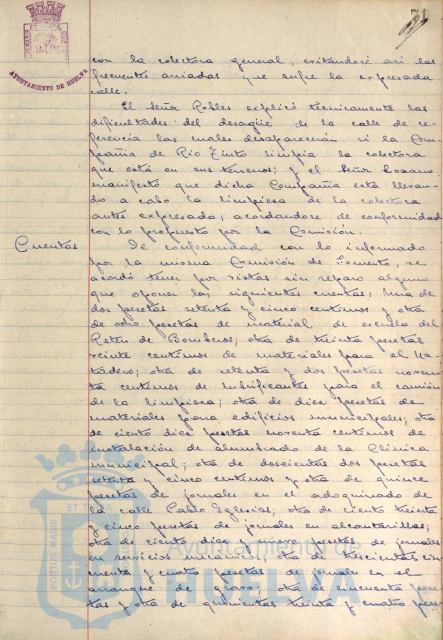 AYUNTAMIENTO DE HUELVA
con la colectora general, evitándose así las
frecuentes arriadas que sufre la expresada
calle.
El Señor Robles explicó técnicamente las
dificultades del desagüe de la calle de re-
ferencia las cuales desaparecerán si la Com-
pañía de Rio Tinto limpia la colectora
que está en sus terrenos; y el Señor Lozano
manifestó que dicha Compañía está llevan-
do a cabo la limpieza de la colectora
antes expresada, acordandose de conformidad
con lo propuesto por la Comisión.
Cuentas
De conformidad con lo informado
por la misma Comisión de Fomento, se
acordó tener por vistas sin reparo alguno
que oponer las siguientes cuentas: Una de
dos pesetas setenta y cinco centimos y otra
de ocho pesetas de material de escuela del
Reten de Bomberos; otra de treinta pesetas
veinte centimos de materiales para el Ma-
tadero; otra de setenta y dos pesetas noven-
ta centimos de lubrificantes para el camión
de la limpieza; otra de diez pesetas de
materiales para edificios municipales; otra
de ciento diez pesetas noventa centimos de
instalación de alumbrado de la Clínica
municipal; otra de doscientas dos pesetas
setenta y cinco centimos y otra de quince
pesetas de jornales en el adoquinado de
la calle Pablo Iglesias; otra de ciento treinta
y cinco pesetas de jornales en alcantarillas;
otra de ciento diez y nueve pesetas de jornales
en servicios otra de trescientas cin-
cuenta y cuatro pesetas de jornales en el
arranque de grava; otra de cincuenta pese-
tas y otra de quinientas treinta y cuatro pese-
PORTUS MARIS ET
Ayuntamiento de
HUELVA